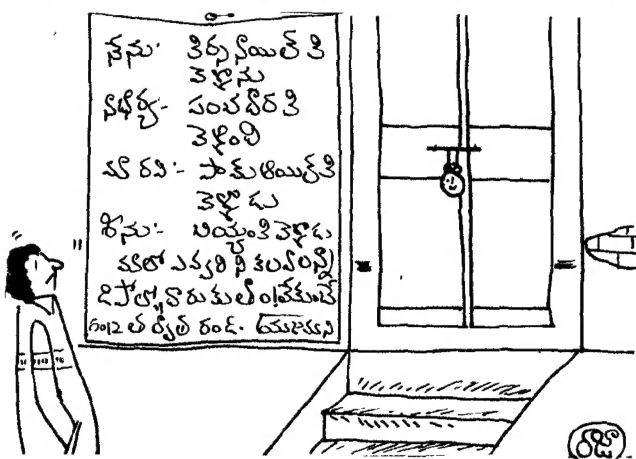 నేను:- కిర్సనాయిల్ కి
వెళ్లాను
నాభార్య:- పంచదారకి
వెళ్లింది
మా రవి:- పామ్ ఆయిల్ కి
వెళ్లాడు
శీను:- బియ్యంకి వెళ్లాడు
మాలో ఎవ్వరిని కలవాలన్నా
డిపోలో దొరుకుతాం! లేకుంటే
గం12 తర్వాత రండి. యజమాని